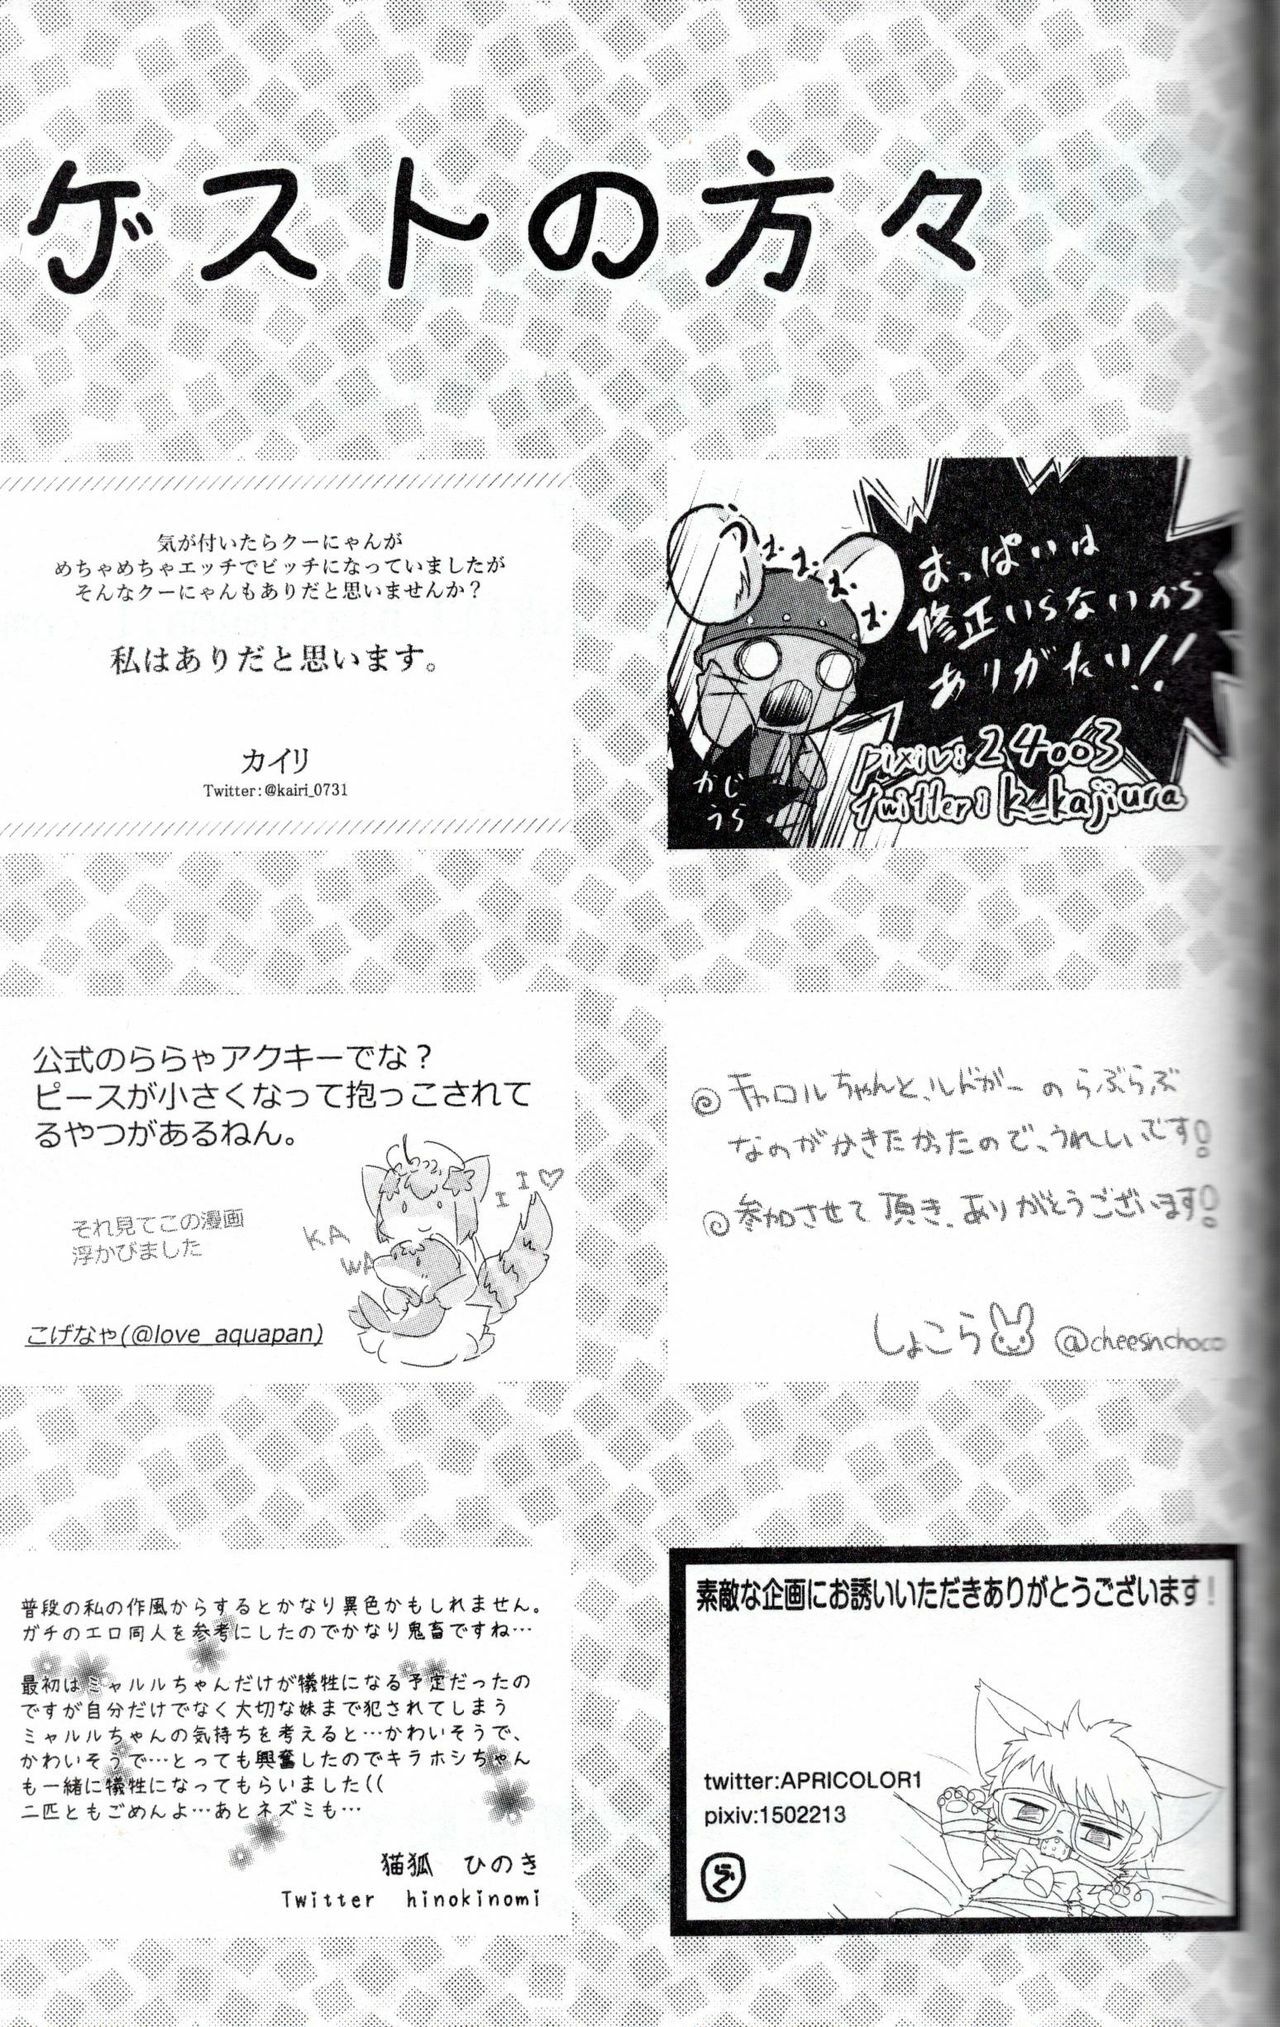 ゲストの方々
気が付いたらクーにゃんが
めちゃめちゃエッチでビッチになっていましたが
そんなクーにゃんもありだと思いませんか？
私はありだと思います。
カイリ
Twitter：@kairi_0731
おっぱいは
修正いらないから
ありがたい!!
pixiv:24003
twitter:k_kajiura
かじ
うら
公式のららゃアクキーでな？
ピースが小さくなって抱っこされて
るやつがあるねん。
KA
WA
I I♡
それ見てこの漫画
浮かびました
こげなゃ(@love_aquapan)
◎キャロルちゃんと、ルドガーのらぶらぶ
なのがかきたかったので、うれしいです!
◎参加させて頂き、ありがとうございます!
しょこら @cheesnchoco
普段の私の作風からするとかなり異色かもしれません。
ガチのエロ同人を参考にしたのでかなり鬼畜ですね…
最初はミャルルちゃんだけが犠牲になる予定だったの
ですが自分だけでなく大切な妹まで犯されてしまう
ミャルルちゃんの気持ちを考えると…かわいそうで、
かわいそうで…とっても興奮したのでキラホシちゃん
も一緒に犠牲になってもらいました((
二匹ともごめんよ…あとネズミも…
猫狐　ひのき
Twitter　hinokinomi
素敵な企画にお誘いいただきありがとうございます！
twitter:APRICOLOR1
pixiv:1502213